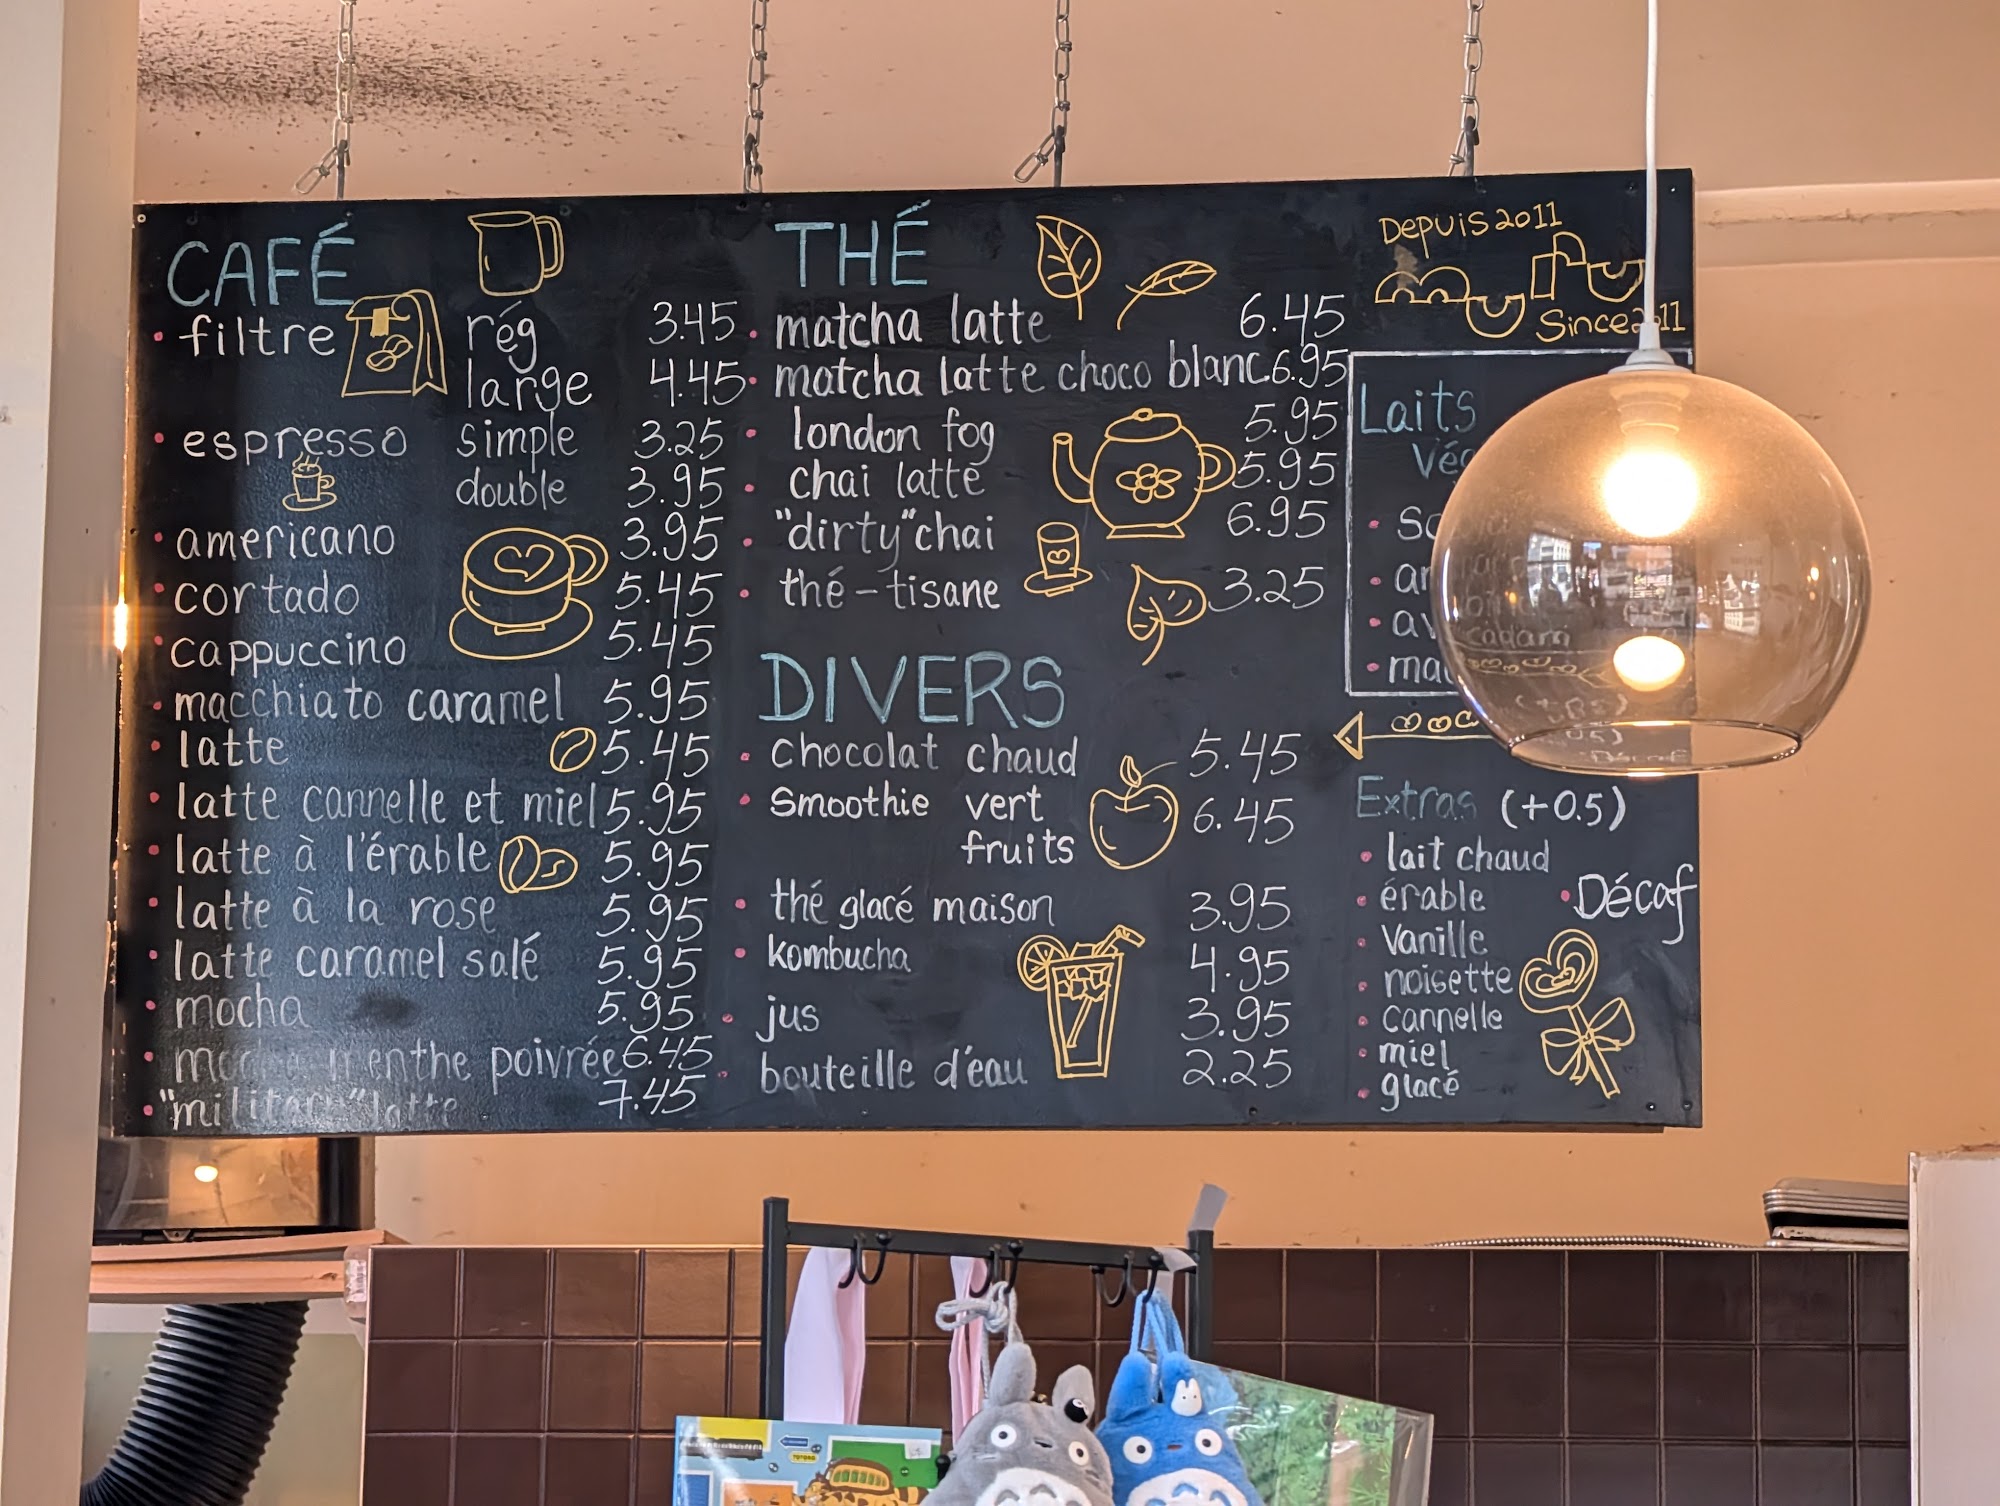 CAFÉ
• filtre rég 3.45
large 4.45
• espresso simple 3.25
double 3.95
• americano 3.95
• cortado 5.45
• cappuccino 5.45
• macchiato caramel 5.95
• latte 5.45
• latte cannelle et miel 5.95
• latte à l'érable 5.95
• latte à la rose 5.95
• latte caramel salé 5.95
• mocha 5.95
• mocha menthe poivrée 6.45
• "military" latte 7.45
THÉ
• matcha latte 6.45
• matcha latte choco blanc 6.95
• london fog 5.95
• chai latte 5.95
• "dirty" chai 6.95
• thé-tisane 3.25
DIVERS
• chocolat chaud 5.45
• smoothie vert
fruits 6.45
• thé glacé maison 3.95
• kombucha 4.95
• jus 3.95
• bouteille d'eau 2.25
Depuis 2011
Since 2011
Laits
Extras (+0.5)
• lait chaud
• érable
• Décaf
• vanille
• noisette
• cannelle
• miel
• glacé